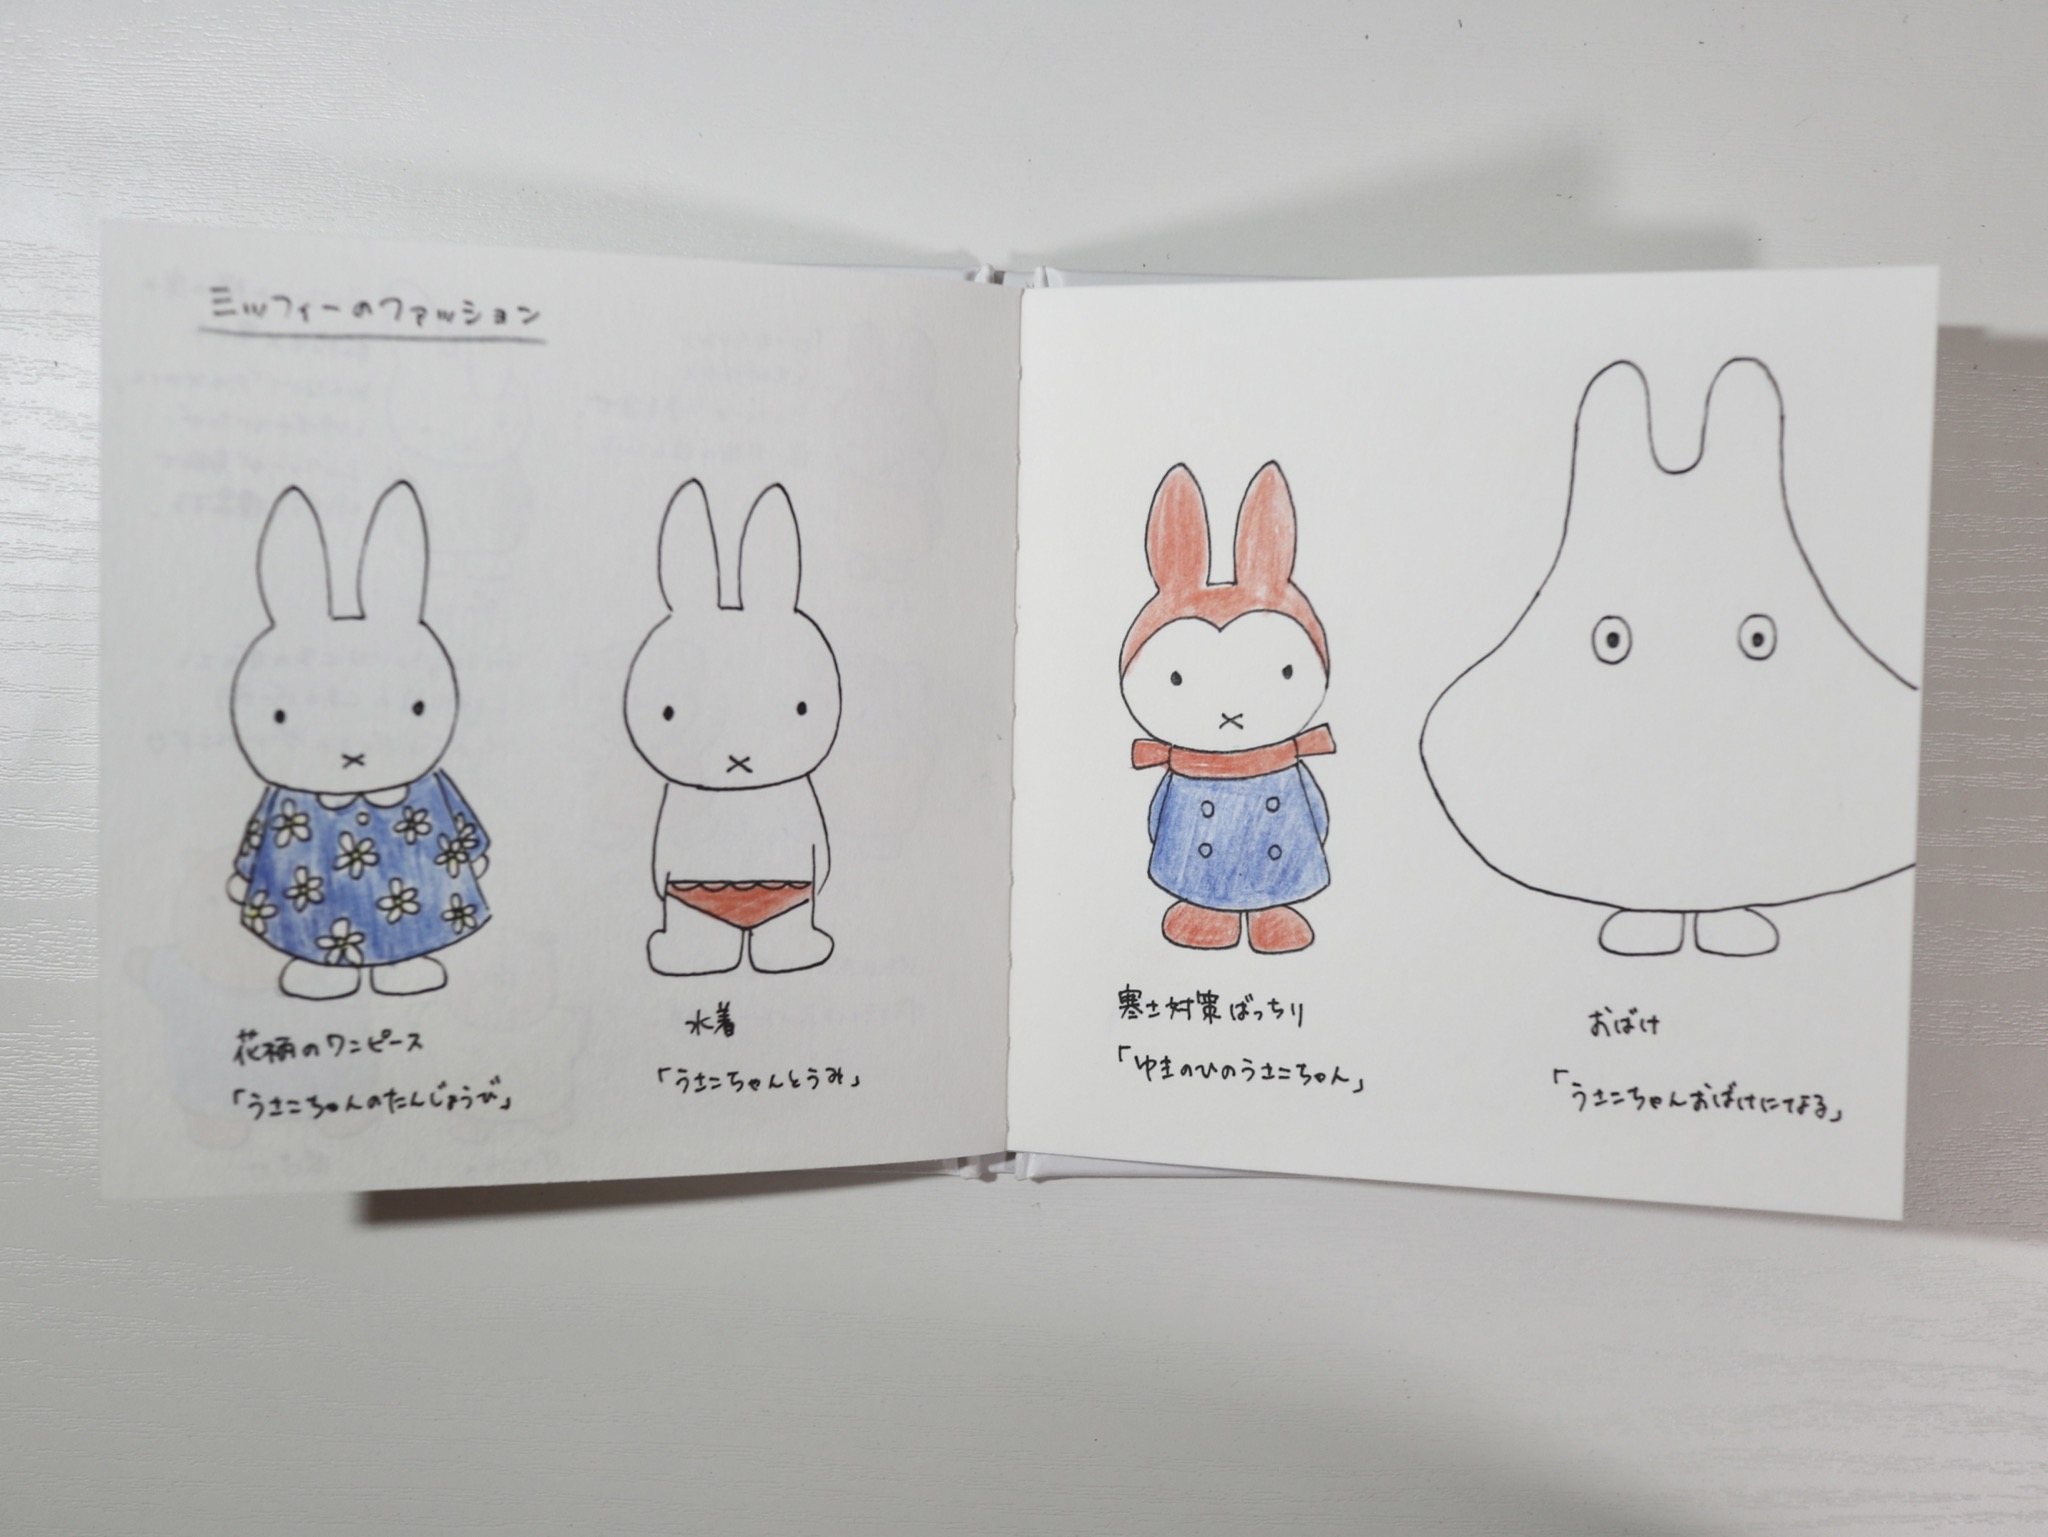 ミッフィーのファッション
花柄のワンピース
「うさこちゃんのたんじょうび」
水着
「うさこちゃんとうみ」
寒さ対策ばっちり
「ゆきのひのうさこちゃん」
おばけ
「うさこちゃんおばけになる」